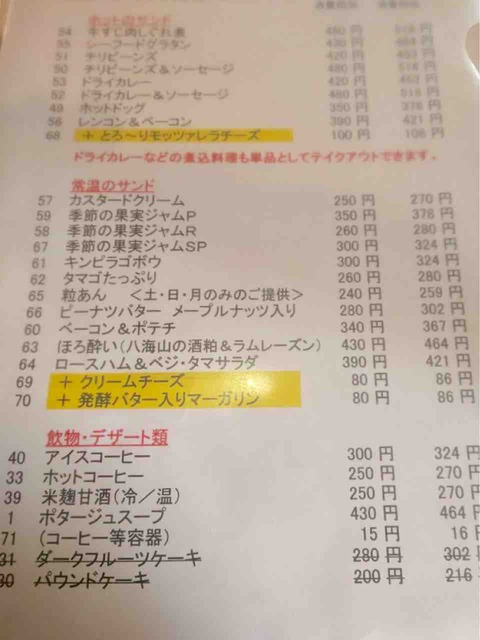 ホットのサンド
54 牛すじ肉しぐれ煮 480 円 518 円
55 シーフードグラタン 430 円 464 円
51 チリビーンズ 420 円 453 円
50 チリビーンズ＆ソーセージ 480 円 518 円
53 ドライカレー 420 円 453 円
52 ドライカレー＆ソーセージ 480 円 518 円
49 ホットドッグ 350 円 378 円
56 レンコン＆ベーコン 390 円 421 円
68 ＋ とろ〜りモッツァレラチーズ 100 円 108 円
ドライカレーなどの煮込料理も単品としてテイクアウトできます。
常温のサンド
57 カスタードクリーム 250 円 270 円
59 季節の果実ジャムP 350 円 378 円
58 季節の果実ジャムR 260 円 280 円
67 季節の果実ジャムSP 300 円 324 円
61 キンピラゴボウ 300 円 324 円
62 タマゴたっぷり 260 円 280 円
65 粒あん ＜土・日・月のみのご提供＞ 240 円 259 円
66 ピーナツバター メープルナッツ入り 280 円 302 円
60 ベーコン＆ポテチ 340 円 367 円
63 ほろ酔い（八海山の酒粕＆ラムレーズン） 430 円 464 円
64 ロースハム＆ベジ・タマサラダ 390 円 421 円
69 ＋ クリームチーズ 80 円 86 円
70 ＋ 発酵バター入りマーガリン 80 円 86 円
飲物・デザート類
40 アイスコーヒー 300 円 324 円
33 ホットコーヒー 250 円 270 円
39 米麹甘酒（冷／温） 250 円 270 円
1 ポタージュスープ 430 円 464 円
71 （コーヒー等容器） 15 円 16 円
31 ダークフルーツケーキ 280 円 302 円
30 パウンドケーキ 200 円 216 円